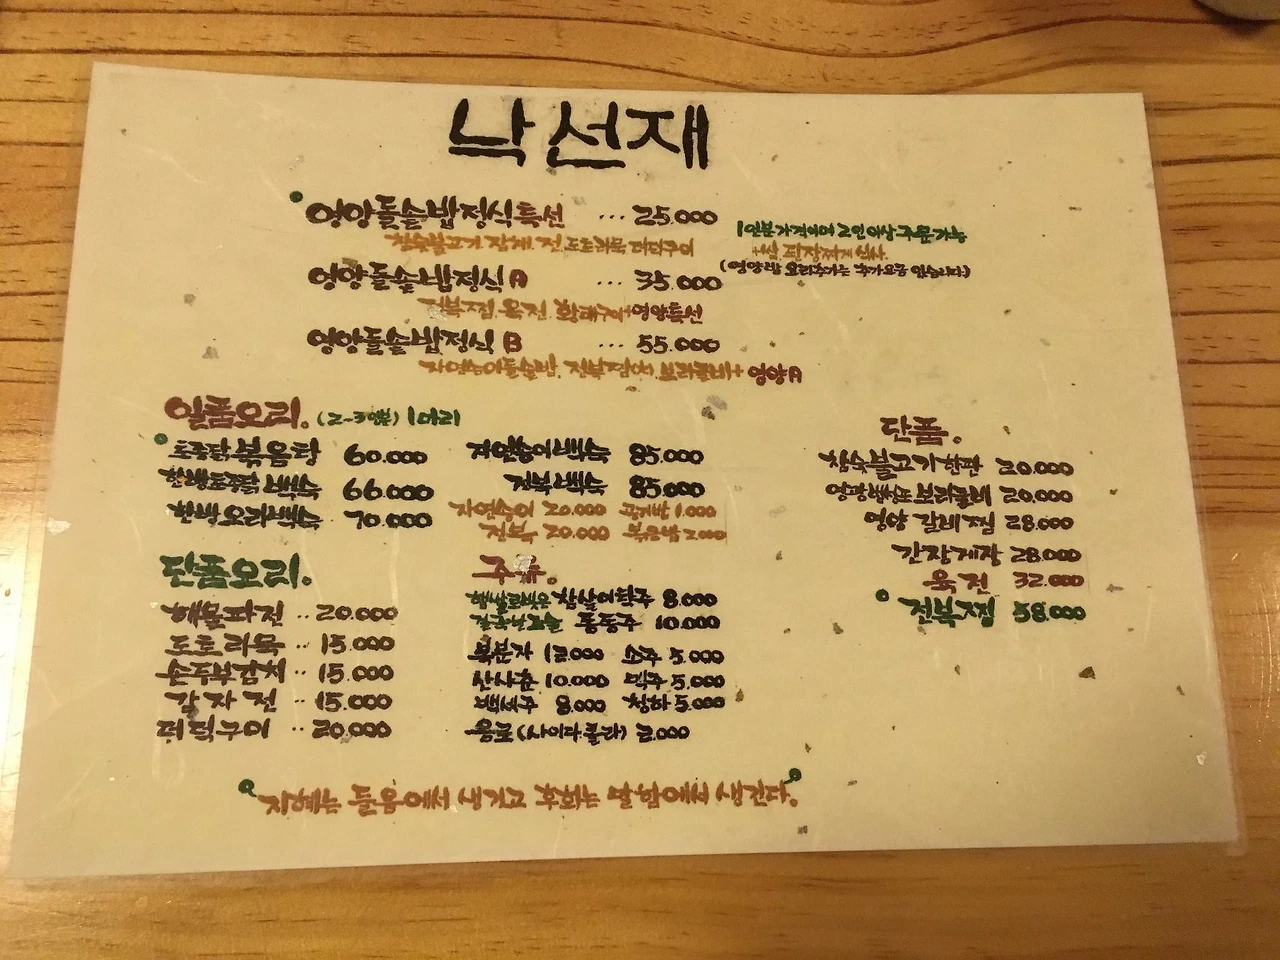 낙선재
영양돌솥밥정식특선 ... 25.000
참숯불고기 잡채 전 도토리묵 더덕구이
1인분 가격이며 2인 이상 주문가능
+쌈. 된장찌개 식사.
영양돌솥밥정식A ... 35.000
(영양밥 요리추가는 추가요금 있습니다.)
전복찜. 육전. 황태구이+영양특선
영양돌솥밥정식B ... 55.000
자연송이돌솥밥. 전복 보리굴비+영양A
일품요리. (2~3인분) 1마리
토종닭볶음탕 60.000
한방토종닭백숙 66.000
한방오리백숙 70.000
자연송이백숙 85.000
전복백숙 85.000
자연송이 20.000 공기밥 1.000
전복 20.000 볶음밥 2.000
단품요리.
해물파전 .. 20.000
도토리묵 .. 15.000
손두부김치 .. 15.000
감자전 .. 15.000
더덕구이 .. 20.000
주류.
햅쌀로빚은 찹쌀이탁주 8.000
동동주 10.000
복분자 12.000 소주 5.000
산사춘 10.000 맥주 5.000
백세주 8.000 청하 5.000
음료(사이다.콜라) 2.000
단품.
참숯불고기한판 20.000
영광법성포보리굴비 20.000
영양갈비찜 28.000
간장게장 28.000
육전 32.000
전복찜 58.000
지혜는 들음에서 생기고 후회는 말함에서 생긴다.